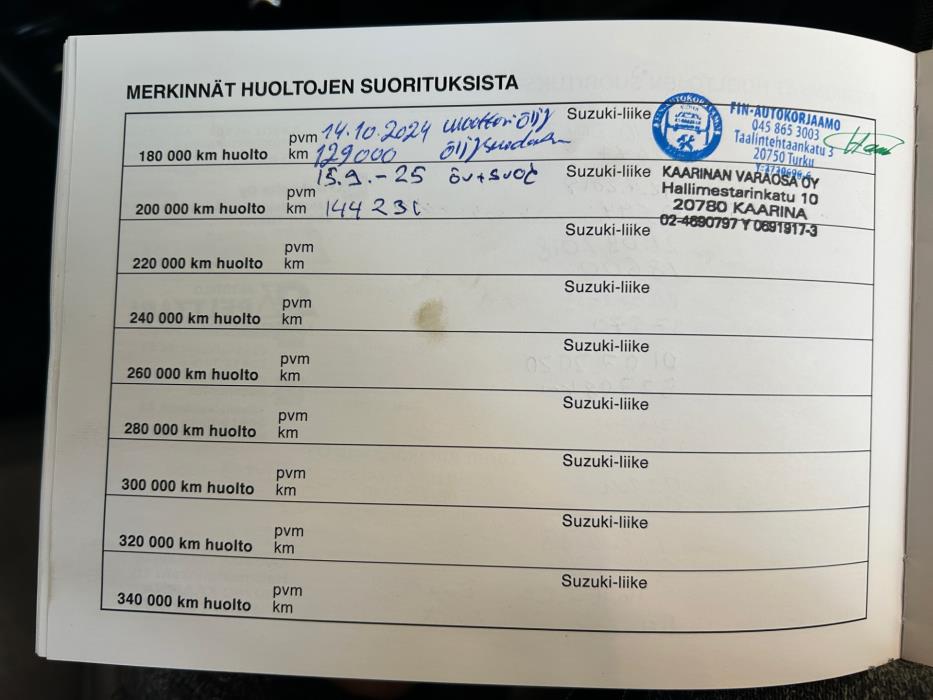 MERKINNÄT HUOLTOJEN SUORITUKSISTA
180 000 km huolto pvm 14.10.2024 moottoriöljy Suzuki-liike
km 129000
FIN-AUTOKORJAAMO
045 865 3003
Taalintehtaankatu 3
20750 Turku
200 000 km huolto pvm 15.9.-25 öv+suod Suzuki-liike
km 144 231
KAARINAN VARAOSA OY
Hallimestarinkatu 10
20780 KAARINA
02-4690797 Y 0691917-3
220 000 km huolto pvm Suzuki-liike
km
240 000 km huolto pvm Suzuki-liike
km
260 000 km huolto pvm Suzuki-liike
km
280 000 km huolto pvm Suzuki-liike
km
300 000 km huolto pvm Suzuki-liike
km
320 000 km huolto pvm Suzuki-liike
km
340 000 km huolto pvm Suzuki-liike
km